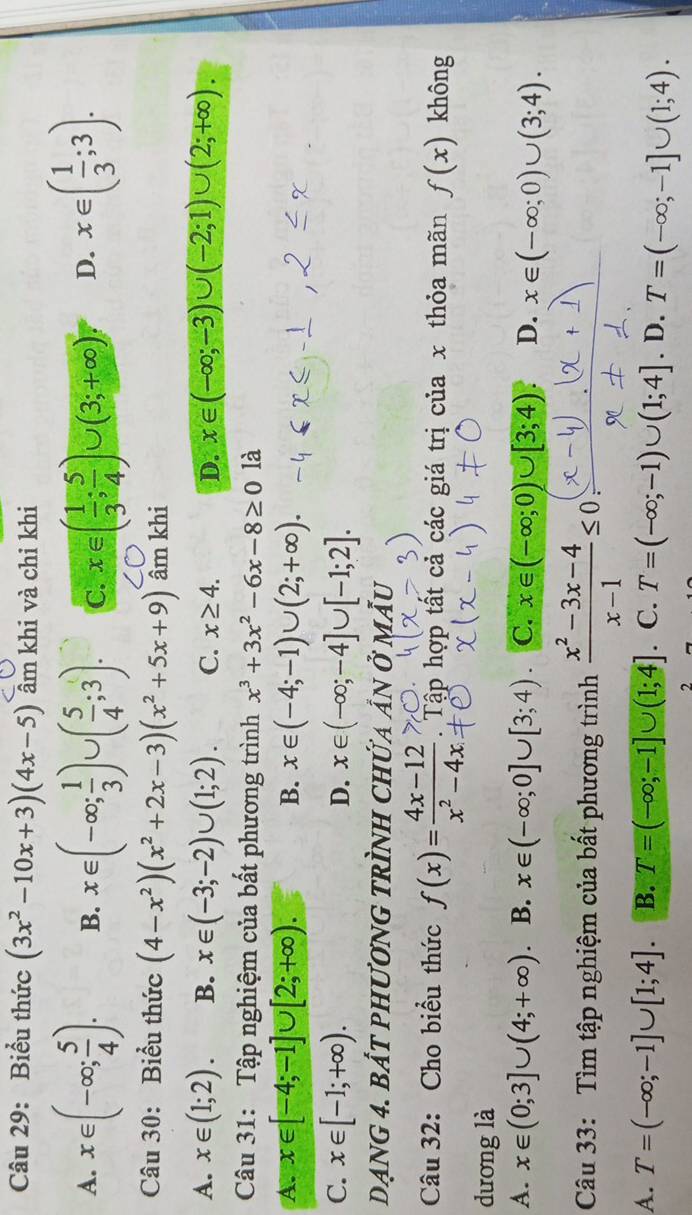 Câu 29: Biểu thức (3x² − 10x + 3)(4x − 5) âm khi và chỉ khi
<0
A. x ∈ (−∞; 5/4). B. x ∈ (−∞; 1/3) ∪ (5/4; 3). C. x ∈ (1/3; 5/4) ∪ (3; +∞). D. x ∈ (1/3; 3).
Câu 30: Biểu thức (4 − x²)(x² + 2x − 3)(x² + 5x + 9) âm khi
<0
A. x ∈ (1; 2). B. x ∈ (−3; −2) ∪ (1; 2). C. x ≥ 4. D. x ∈ (−∞; −3) ∪ (−2; 1) ∪ (2; +∞).
Câu 31: Tập nghiệm của bất phương trình x³ + 3x² − 6x − 8 ≥ 0 là
A. x ∈ [−4; −1] ∪ [2; +∞). B. x ∈ (−4; −1) ∪ (2; +∞).
-4 ≤ x ≤ -1, 2 ≤ x
C. x ∈ [−1; +∞). D. x ∈ (−∞; −4] ∪ [−1; 2].
DẠNG 4. BẤT PHƯƠNG TRÌNH CHỨA ẨN Ở MẪU
Câu 32: Cho biểu thức f(x) = (4x − 12)/(x² − 4x). Tập hợp tất cả các giá trị của x thỏa mãn f(x) không
4(x - 3)
≠0 x(x - 4) ≠ 0
dương là
A. x ∈ (0; 3] ∪ (4; +∞). B. x ∈ (−∞; 0] ∪ [3; 4). C. x ∈ (−∞; 0) ∪ [3; 4). D. x ∈ (−∞; 0) ∪ (3; 4).
Câu 33: Tìm tập nghiệm của bất phương trình (x² − 3x − 4)/(x − 1) ≤ 0.
(x - 4).(x + 1)
x ≠ 1.
A. T = (−∞; −1] ∪ [1; 4]. B. T = (−∞; −1] ∪ (1; 4]. C. T = (−∞; −1) ∪ (1; 4]. D. T = (−∞; −1] ∪ (1; 4).